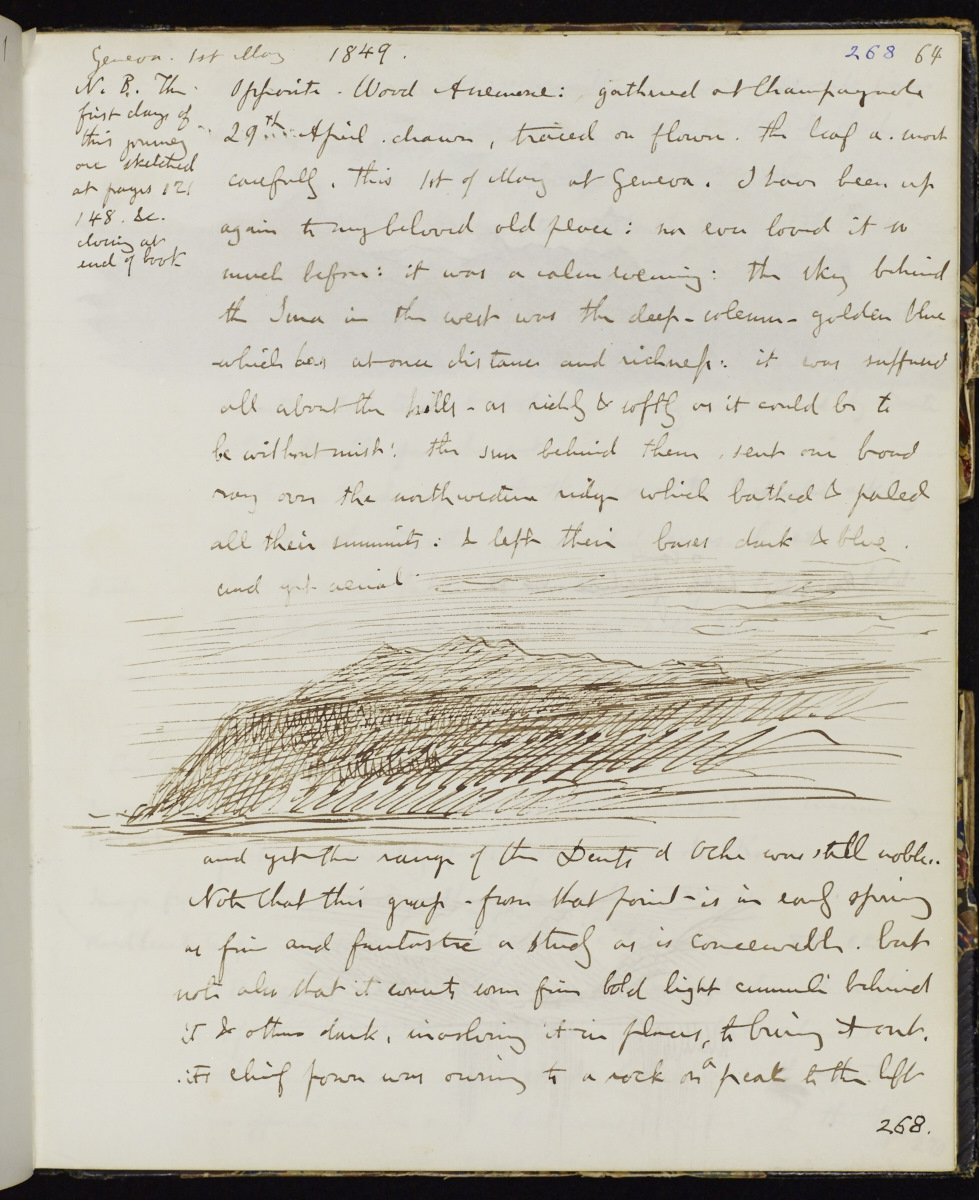 Geneva. 1st May 1849.
268 64
N. B. The
first days of
this journey
are sketched
at pages 121
148. &c.
closing at
end of book
Opposite - Wood Anemone: gathered at Champagnole
29th April. drawn, traced on flower. the leaf a. most
carefully, this 1st of May at Geneva. I have been up
again to my beloved old place: nor ever loved it so
much before: it was a calm evening: the sky behind
the Jura in the west was the deep - solemn - golden blue
which has at once distance and richness: it was suffused
all about the hills - as richly & softly as it could be to
be without mist: the sun behind them, sent one broad
ray over the northwestern ridge which bathed & paled
all their summits: & left their bases dark & blue.
and yet aerial
and yet the range of the Dents d Oche was still noble.
Note that this group - from that point - is in early spring
as fine and fantastic a study as is conceivable. but
note also that it wants some fine bold light cumuli behind
it & others dark, involving it in places, to bring it out.
its chief power was owing to a rock or a peak to the left
268.